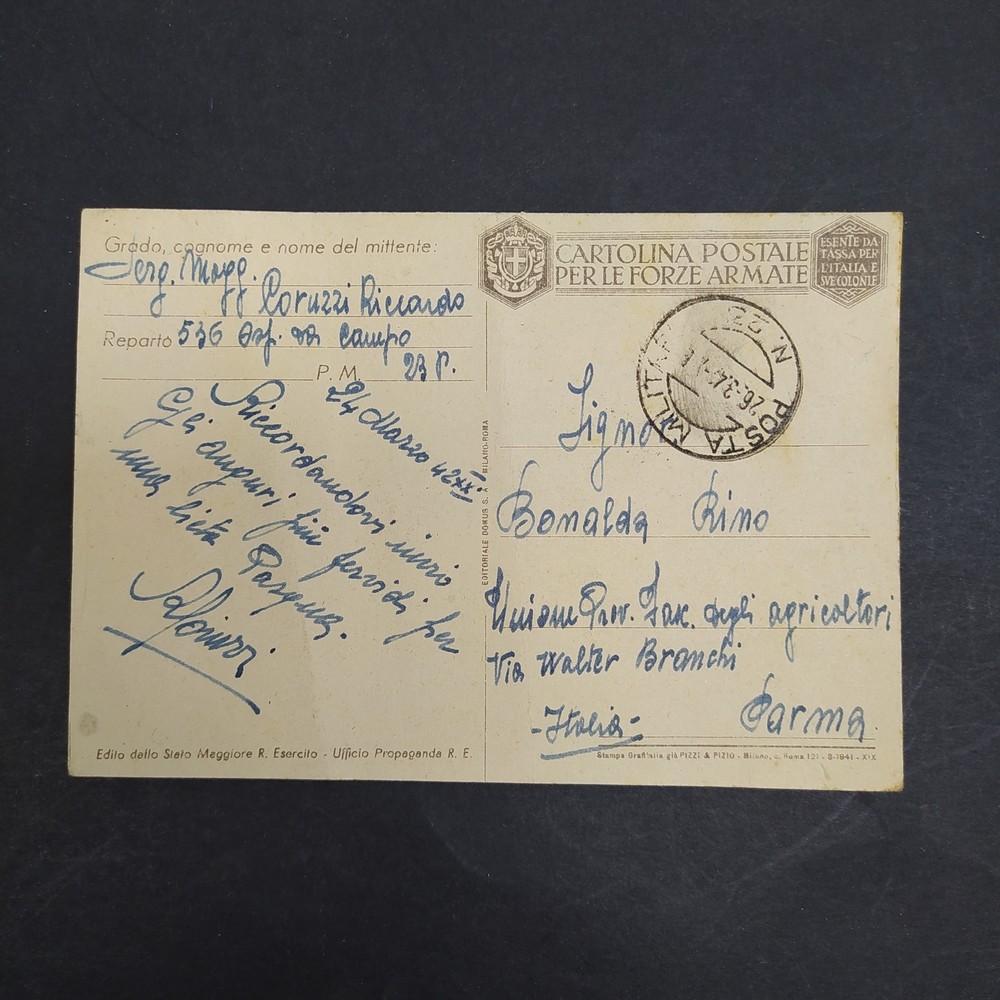 Grado, cognome e nome del mittente:
Serg. Magg.
Coruzzi Riccardo
Reparto 536 Osp. da Campo
P. M. 23 P.
24 Marzo 42 XX.
Riccordandovi invio
Gli auguri più fervidi per
una lieta Pasqua.
Edito dallo Stato Maggiore R. Esercito - Ufficio Propaganda R. E.
EDITORIALE DOMUS S. A. MILANO-ROMA
CARTOLINA POSTALE
PER LE FORZE ARMATE
ESENTE DA
TASSA PER
L'ITALIA E
SUE COLONIE
POSTA MILITARE N. 23
26.3.42
Signor
Bonalda Rino
Unione Prov. Fax. degli agricoltori
Via Walter Branchi
-Italia- Parma
Stampa Grafitalia già PIZZI & PIZIO - Milano, v. Roma 121 - 8-1941 - XIX